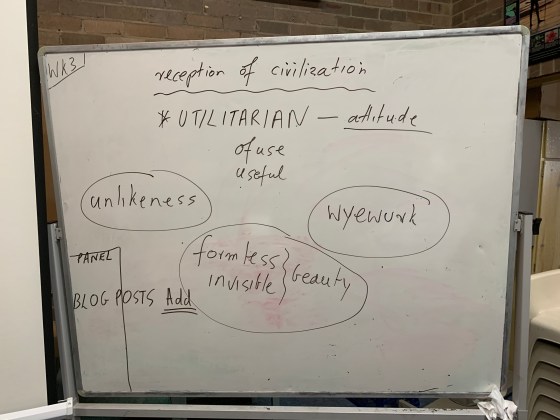 WK3
reception of civilization
* UTILITARIAN — attitude
of use
useful
unlikeness
wyewurk
formless
invisible } beauty
PANEL
BLOG POSTS Add